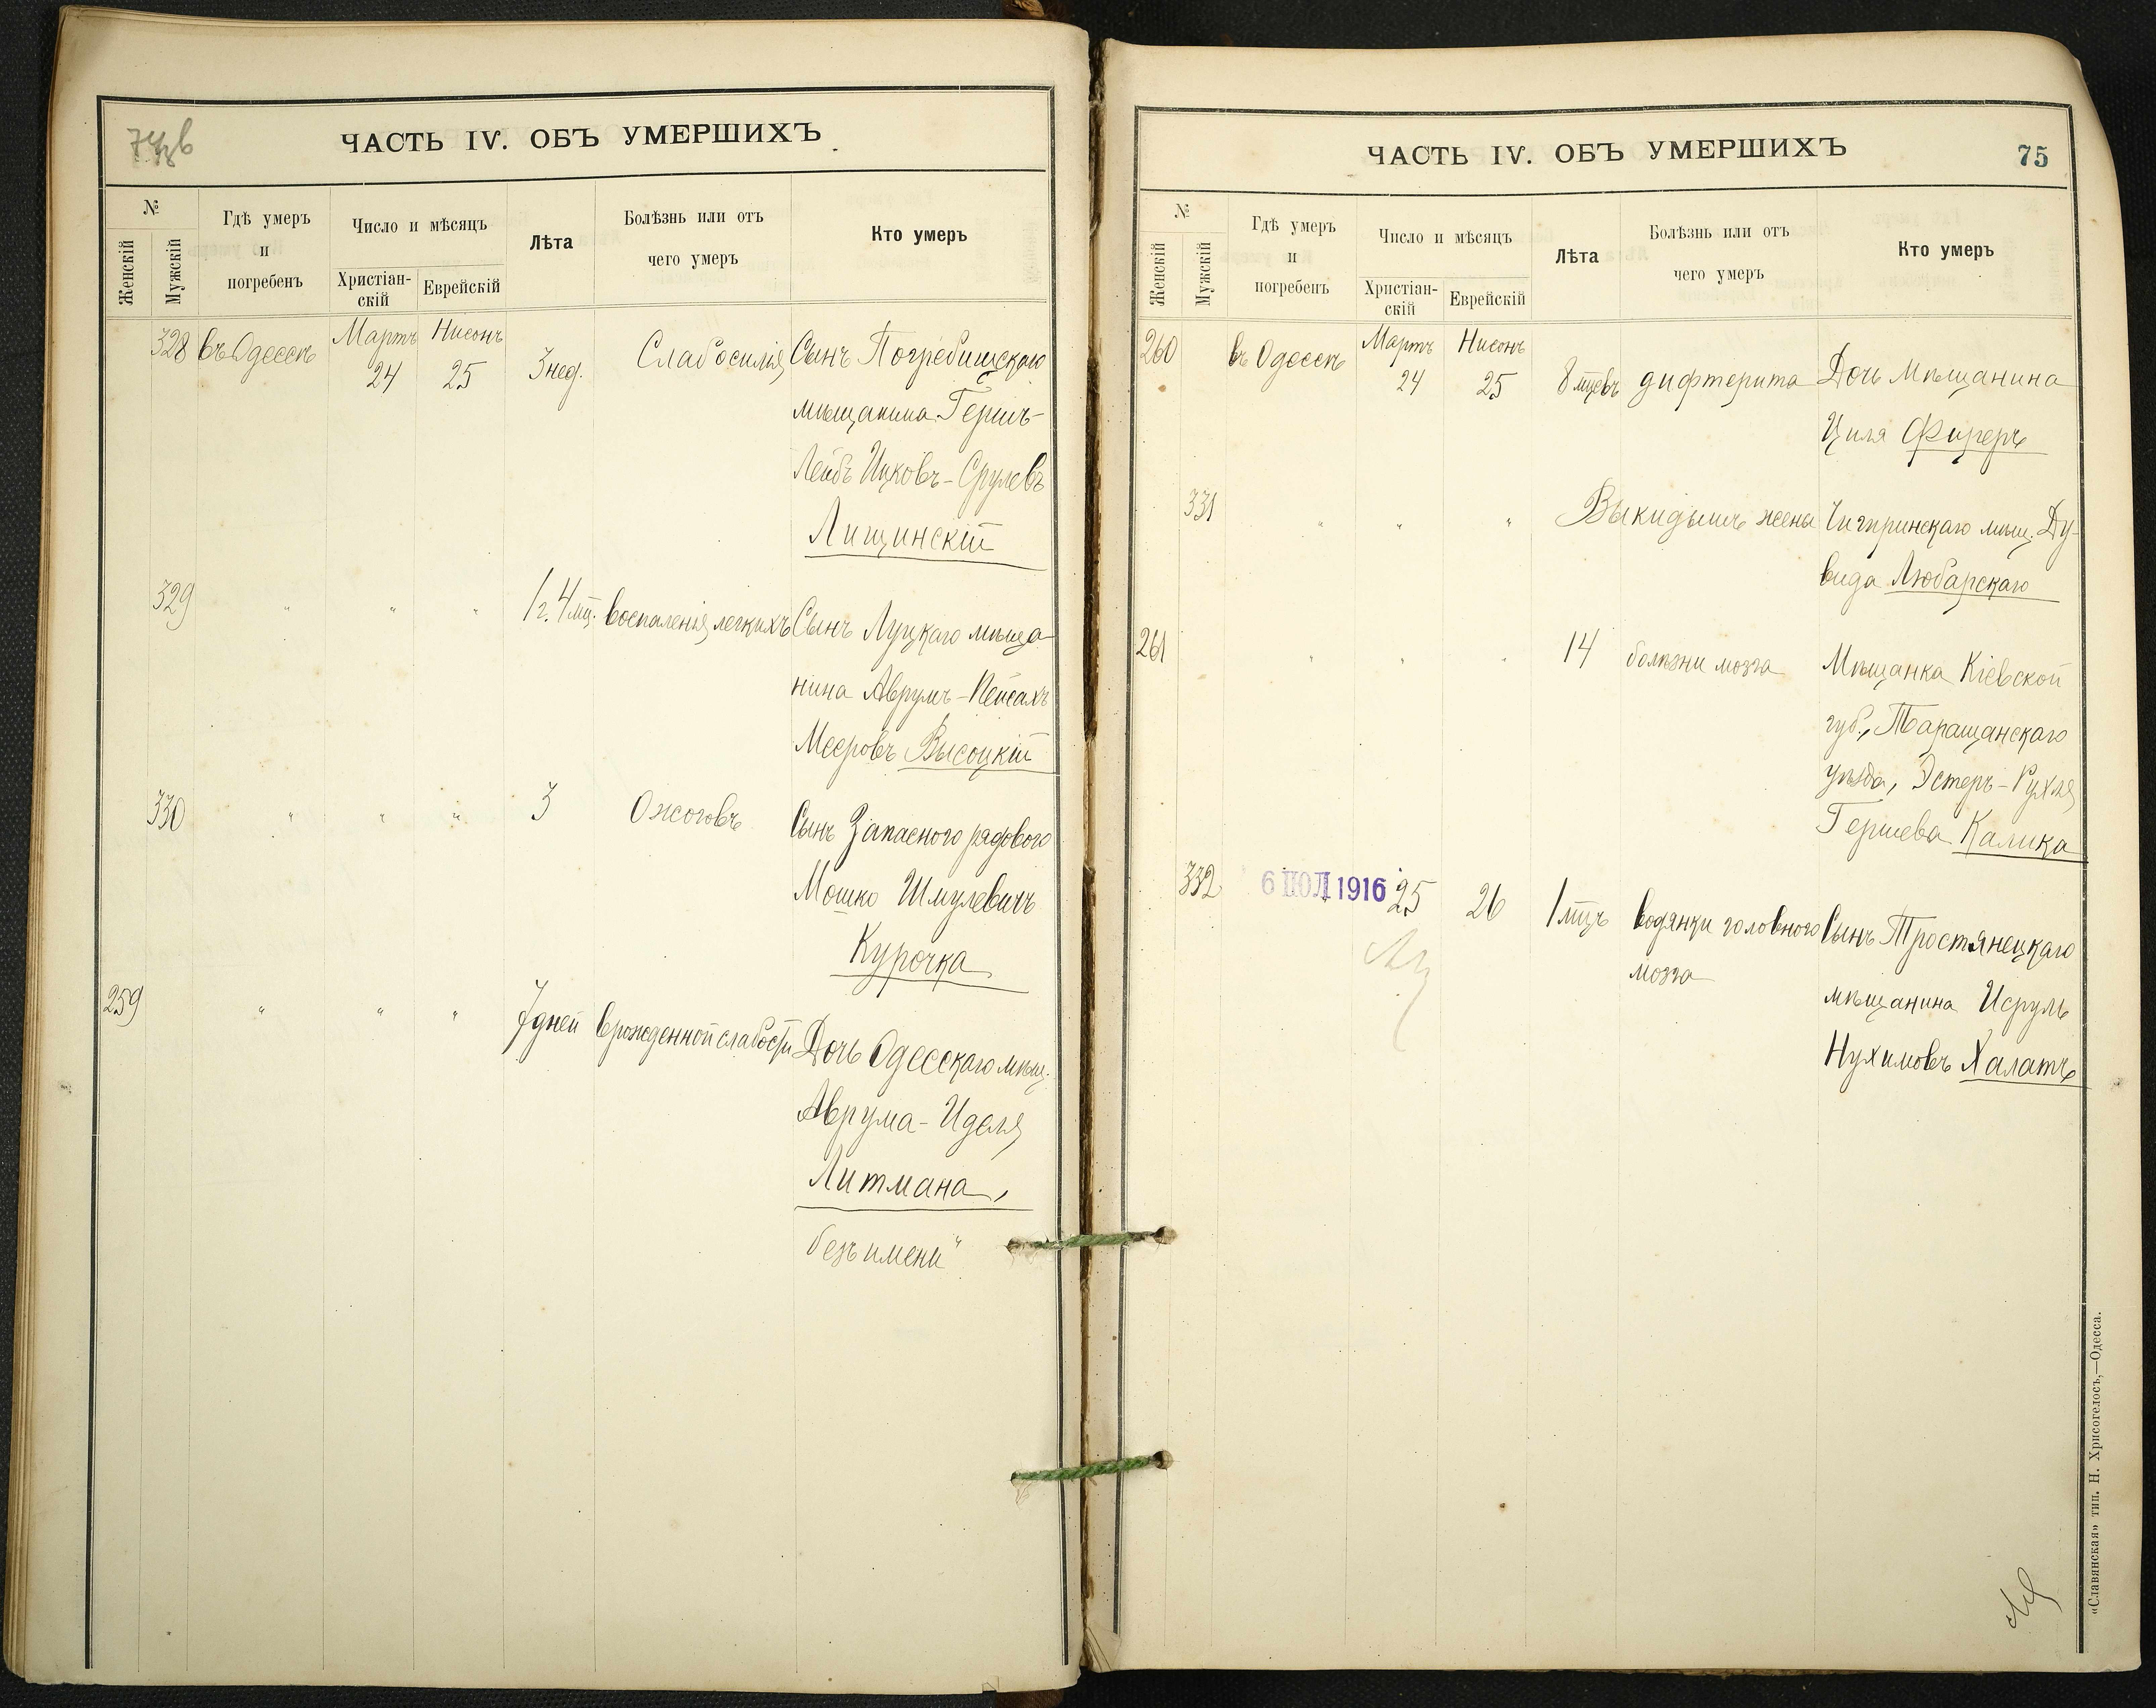 ЧАСТЬ IV. ОБЪ УМЕРШИХЪ
№
Женскій
Мужскій
Гдѣ умеръ
и
погребенъ
Число и мѣсяцъ
Христіан-
скій
Еврейскій
Лѣта
Болѣзнь или отъ
чего умеръ
Кто умеръ
328 въ Одессѣ Мартъ 24 Нисонъ 25 3 нед. Слабосилія Сынъ Погребищскаго
мѣщанина Гершъ-
Лейбъ Ицковъ-Срулевъ
Лищинскій
329 " " " 1 г. 4 мц. воспаленія легкихъ Сынъ Луцкаго мѣща-
нина Аврумъ-Пейсахъ
Мееровъ Высоцкій
330 " " " 3 Ожоговъ Сынъ Запасного рядового
Мошко Шмулевичъ
Курочка
259 " " " 7 дней врожденной слабости Дочь Одесскаго мѣщ.
Аврума-Иделя
Литмана,
безъ имени"
ЧАСТЬ IV. ОБЪ УМЕРШИХЪ
75
№
Женскій
Мужскій
Гдѣ умеръ
и
погребенъ
Число и мѣсяцъ
Христіан-
скій
Еврейскій
Лѣта
Болѣзнь или отъ
чего умеръ
Кто умеръ
260 въ Одессѣ Мартъ 24 Нисонъ 25 8 мцевъ дифтерита Дочь мѣщанина
Циля Фиреръ
331 " " " Выкидышъ жены Чигиринскаго мѣщ. Ду-
вида Любарскаго
261 " " " 14 болѣзни мозга Мѣщанка Кіевской
губ., Таращанскаго
уѣзда, Эстеръ-Рухля
Гершева Калика
332 6 ІЮЛ 1916 25 26 1 мцъ водянки головного Сынъ Тростянецкаго
мозга
мѣщанина Исруль
Нухимовъ Халатъ
«Славянская» тип. Н. Хрисогелосъ,—Одесса.